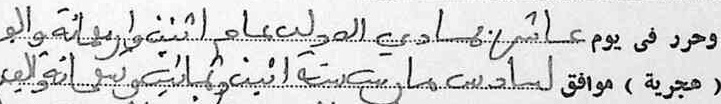 وحرر فى يوم عاشر جمادي الاولى عام اثنين واربعمائة والف
( هجرية ) موافق لسادس مارس سنة اثنين وثمانين وتسعمائة والف